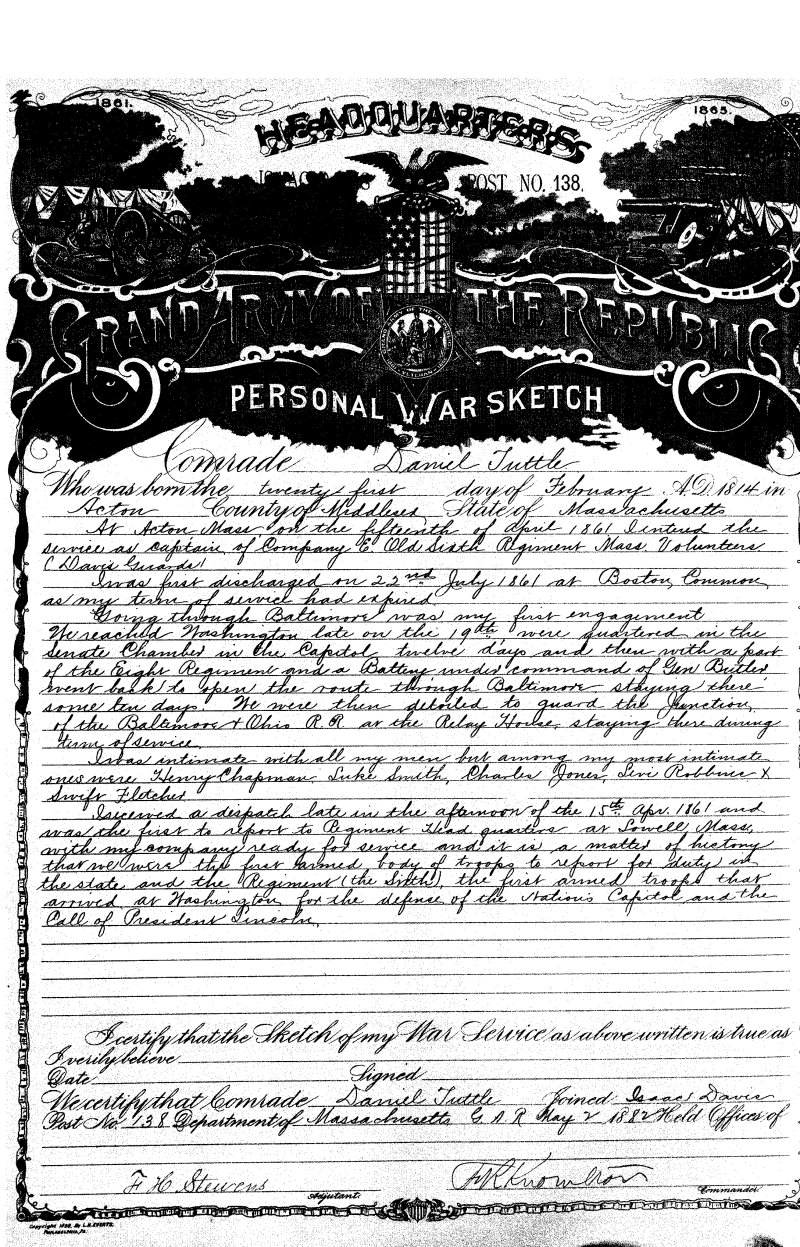 1861.
1865.
HEADQUARTERS
POST NO. 138.
GRAND ARMY OF THE REPUBLIC
PERSONAL WAR SKETCH
Comrade Daniel Tuttle
Who was born the twenty first day of February A.D. 1814 in
Acton County of Middlesex State of Massachusetts
At Acton Mass on the fifteenth of April 1861 I entered the
service as captain of Company E. Old Sixth Regiment Mass. Volunteers
(Davis Guards)
I was first discharged on 22nd July 1861 at Boston, Common,
as my term of service had expired
Going through Baltimore was my first engagement
We reached Washington late on the 19th were quartered in the
Senate Chamber in the Capitol, twelve days and then with a part
of the Eight Regiment and a Battery under command of Gen Butler
went back to open the route through Baltimore staying there
some ten days. We were then detailed to guard the Junction,
of the Baltimore & Ohio R.R at the Relay House, staying there during
term of service.
I was intimate with all my men but among my most intimate
ones were Henry Chapman, Luke Smith, Charles Jones, Levi Robbins &
Swift Fletcher
I received a dispatch late in the afternoon of the 15th Apr. 1861 and
was the first to report to Regiment Head quarters at Lowell, Mass,
with my company ready for service and it is a matter of history
that we were the first armed body of troops to report for duty in
the state and the Regiment (the Sixth), the first armed troops that
arrived at Washington for the defense of the Nation's Capitol and the
Call of President Lincoln,
I certify that the Sketch of my War Service as above written is true as
I verily believe
Date Signed
We certify that Comrade Daniel Tuttle Joined Isaac Davis
Post No. 138 Department of Massachusetts G A R May 2 1882 Held Offices of
F H Stevens
F R Knowlton
Adjutant.
Commander.
Copyright 1890, By L.H. EVERTS,
PHILADELPHIA, PA.